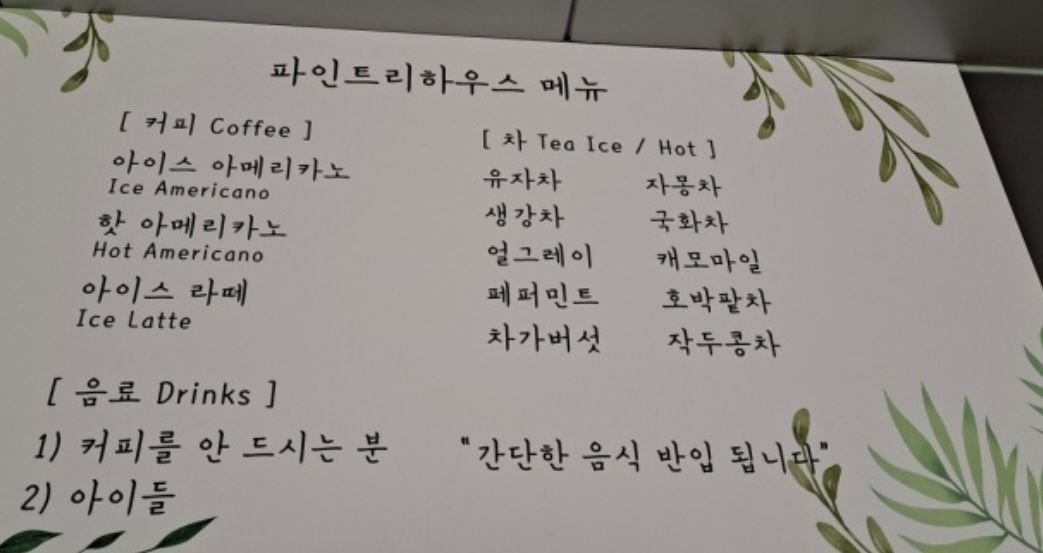 파인트리하우스 메뉴
[ 커피 Coffee ]
아이스 아메리카노
Ice Americano
핫 아메리카노
Hot Americano
아이스 라떼
Ice Latte
[ 차 Tea Ice / Hot ]
유자차 자몽차
생강차 국화차
얼그레이 캐모마일
페퍼민트 호박팥차
차가버섯 작두콩차
[ 음료 Drinks ]
1) 커피를 안 드시는 분
2) 아이들
"간단한 음식 반입 됩니다"